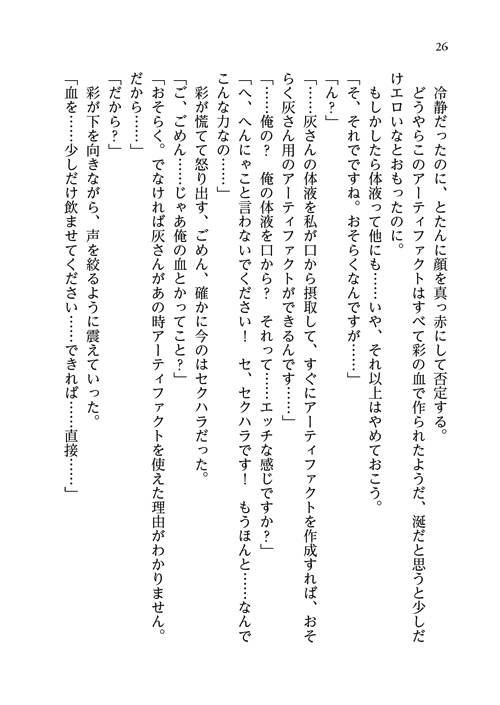 26
冷静だったのに、とたんに顔を真っ赤にして否定する。
どうやらこのアーティファクトはすべて彩の血で作られたようだ、涎だと思うと少しだ
けエロいなとおもったのに。
もしかしたら体液って他にも……いや、それ以上はやめておこう。
「そ、それでですね。おそらくなんですが……」
「ん？」
「……灰さんの体液を私が口から摂取して、すぐにアーティファクトを作成すれば、おそ
らく灰さん用のアーティファクトができるんです……」
「……俺の？　俺の体液を口から？　それって……エッチな感じですか？」
「へ、へんにゃこと言わないでください！　セ、セクハラです！　もうほんと……なんで
こんな力なの……」
彩が慌てて怒り出す、ごめん、確かに今のはセクハラだった。
「ご、ごめん……じゃあ俺の血とかってこと？」
「おそらく。でなければ灰さんがあの時アーティファクトを使えた理由がわかりません。
だから……」
「だから？」
彩が下を向きながら、声を絞るように震えていった。
「血を……少しだけ飲ませてください……できれば……直接……」